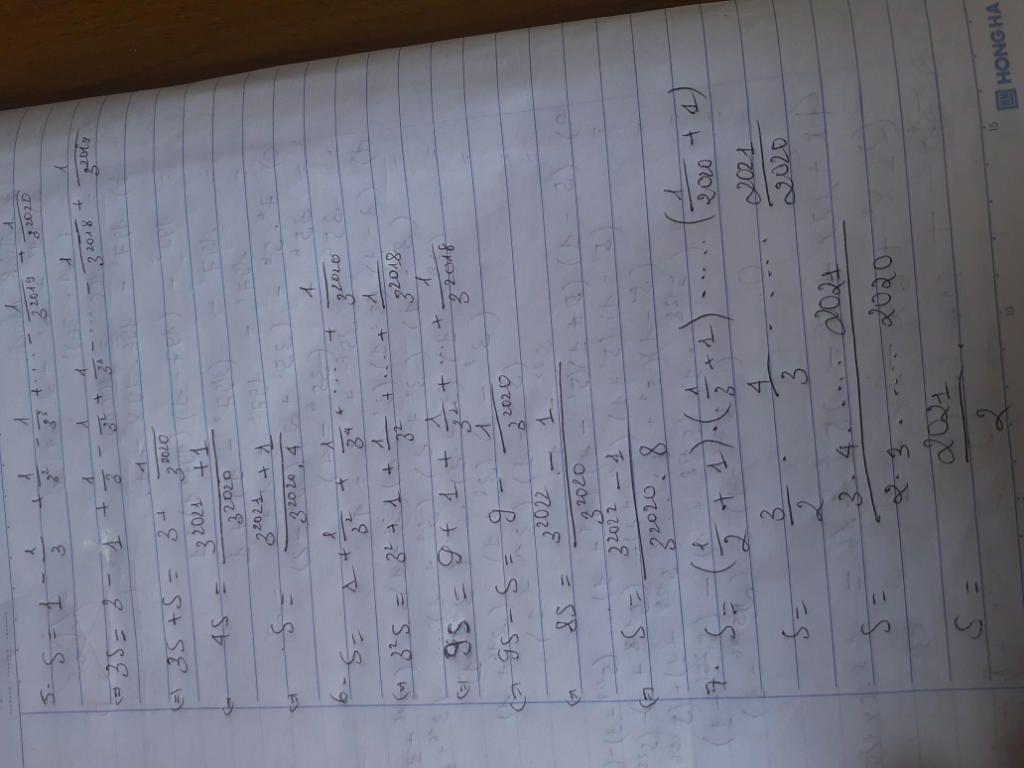 5. S = 1 - 1/3 + 1/3² - 1/3³ + ... - 1/3²⁰¹⁹ + 1/3²⁰²⁰
(=) 3S = 3 - 1 + 1/3 - 1/3² + 1/3³ - ... - 1/3²⁰¹⁸ + 1/3²⁰¹⁹
(=) 3S + S = 3 + 1/3²⁰²⁰
(=) 4S = 3²⁰²¹ + 1 / 3²⁰²⁰
(=) S = 3²⁰²¹ + 1 / 3²⁰²⁰ . 4
6 - S = 1 + 1/3² + 1/3⁴ + .... + 1/3²⁰²⁰
(=) 3²S = 3² + 1 + 1/3² + ... + 1/3²⁰¹⁸
(=) 9S = 9 + 1 + 1/3² + ... + 1/3²⁰¹⁸
(=) 9S - S = 9 - 1/3²⁰²⁰
(=) 8S = 3²⁰²² - 1 / 3²⁰²⁰
(=) S = 3²⁰²² - 1 / 3²⁰²⁰ . 8
7. S = (1/2 + 1) . (1/3 + 1) .... (1/2020 + 1)
S = 3/2 . 4/3 ........ 2021/2020
S = 3 . 4 .... 2021 / 2 . 3 .... 2020
S = 2021 / 2 .
HONGHA
15
10